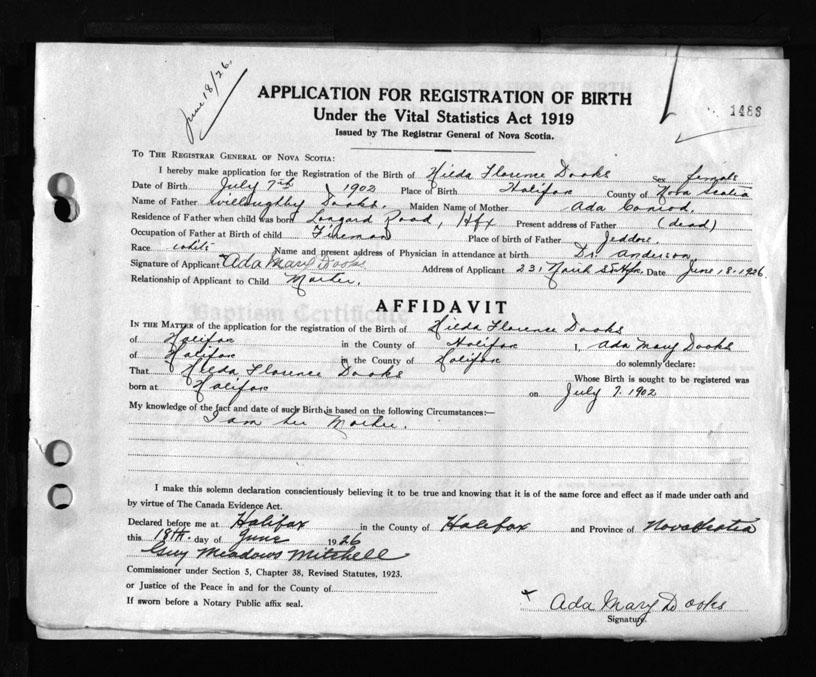 June 18/26.
1483
APPLICATION FOR REGISTRATION OF BIRTH
Under the Vital Statistics Act 1919
Issued by The Registrar General of Nova Scotia.
To The Registrar General of Nova Scotia:
I hereby make application for the Registration of the Birth of Hilda Florence Dooks Sex female
Date of Birth July 7th 1902 Place of Birth Halifax County of Nova Scotia
Name of Father Willoughby Dooks. Maiden Name of Mother Ada Conrod.
Residence of Father when child was born Longard Road, Hfx Present address of Father (dead)
Occupation of Father at Birth of child Fireman Place of birth of Father Jeddore.
Race white Name and present address of Physician in attendance at birth Dr. Anderson.
Signature of Applicant Ada Mary Dooks Address of Applicant 231 North St Hfx. Date June 18-1926
Relationship of Applicant to Child Mother.
AFFIDAVIT
In the Matter of the application for the registration of the Birth of Hilda Florence Dooks
of Halifax in the County of Halifax I, Ada Mary Dooks
of Halifax in the County of Halifax do solemnly declare:
That Hilda Florence Dooks Whose Birth is sought to be registered was
born at Halifax on July 7. 1902
My knowledge of the fact and date of such Birth is based on the following Circumstances:—
I am her Mother.
I make this solemn declaration conscientiously believing it to be true and knowing that it is of the same force and effect as if made under oath and
by virtue of The Canada Evidence Act.
Declared before me at Halifax in the County of Halifax and Province of Nova Scotia
this 18th. day of June 1926
Guy Meadows Mitchell
Commissioner under Section 5, Chapter 38, Revised Statutes, 1923.
or Justice of the Peace in and for the County of
If sworn before a Notary Public affix seal.
x Ada Mary Dooks
Signature.